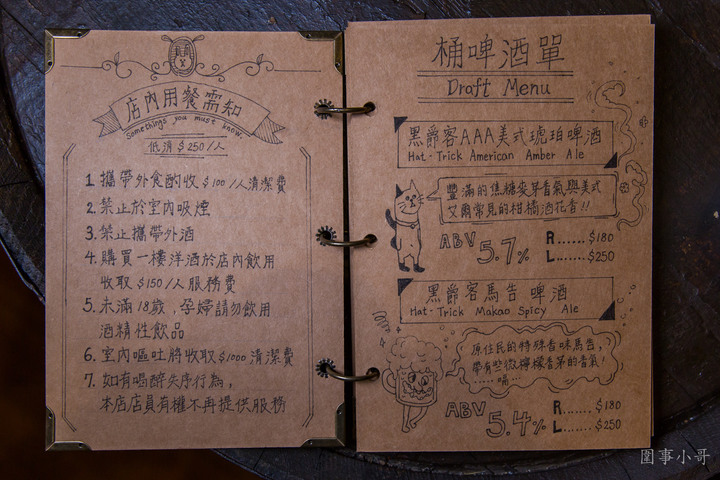 店內用餐需知
Somethings you must know
低消 $250/人
1. 攜帶外食酌收 $100/人清潔費
2. 禁止於室內吸煙
3. 禁止攜帶外酒
4. 購買一樓洋酒於店內飲用
收取 $150/人服務費
5. 未滿18歲,孕婦請勿飲用
酒精性飲品
6. 室內嘔吐將收取 $1000 清潔費
7. 如有喝醉失序行為,
本店店員有權不再提供服務
桶啤酒單
Draft Menu
黑爵客AAA美式琥珀啤酒
Hat-Trick American Amber Ale
豐滿的焦糖麥芽香氣與美式
艾爾常見的柑橘酒花香!!
ABV 5.7% R......$180
L......$250
黑爵客馬告啤酒
Hat-Trick Makao Spicy Ale
原住民的特殊香味馬告,
帶有些微檸檬香茅的香氣!
ABV 5.4% R......$180
L......$250
圍事小哥